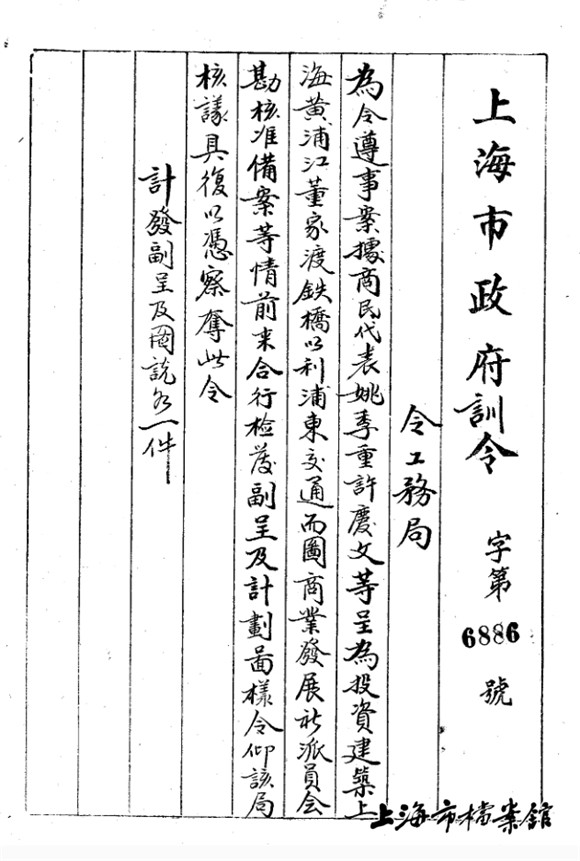 上海市政府訓令 字第6886號
令工務局
為令遵事案據商民代表姚季重許慶文等呈為投資建築上
海黃浦江董家渡鉄橋以利浦東交通而圖商業發展祈派員会
勘核准備案等情前来合行检發副呈及計劃啚樣令仰該局
核議具復以憑察奪此令
計發副呈及圖說各一件
上海市檔案館